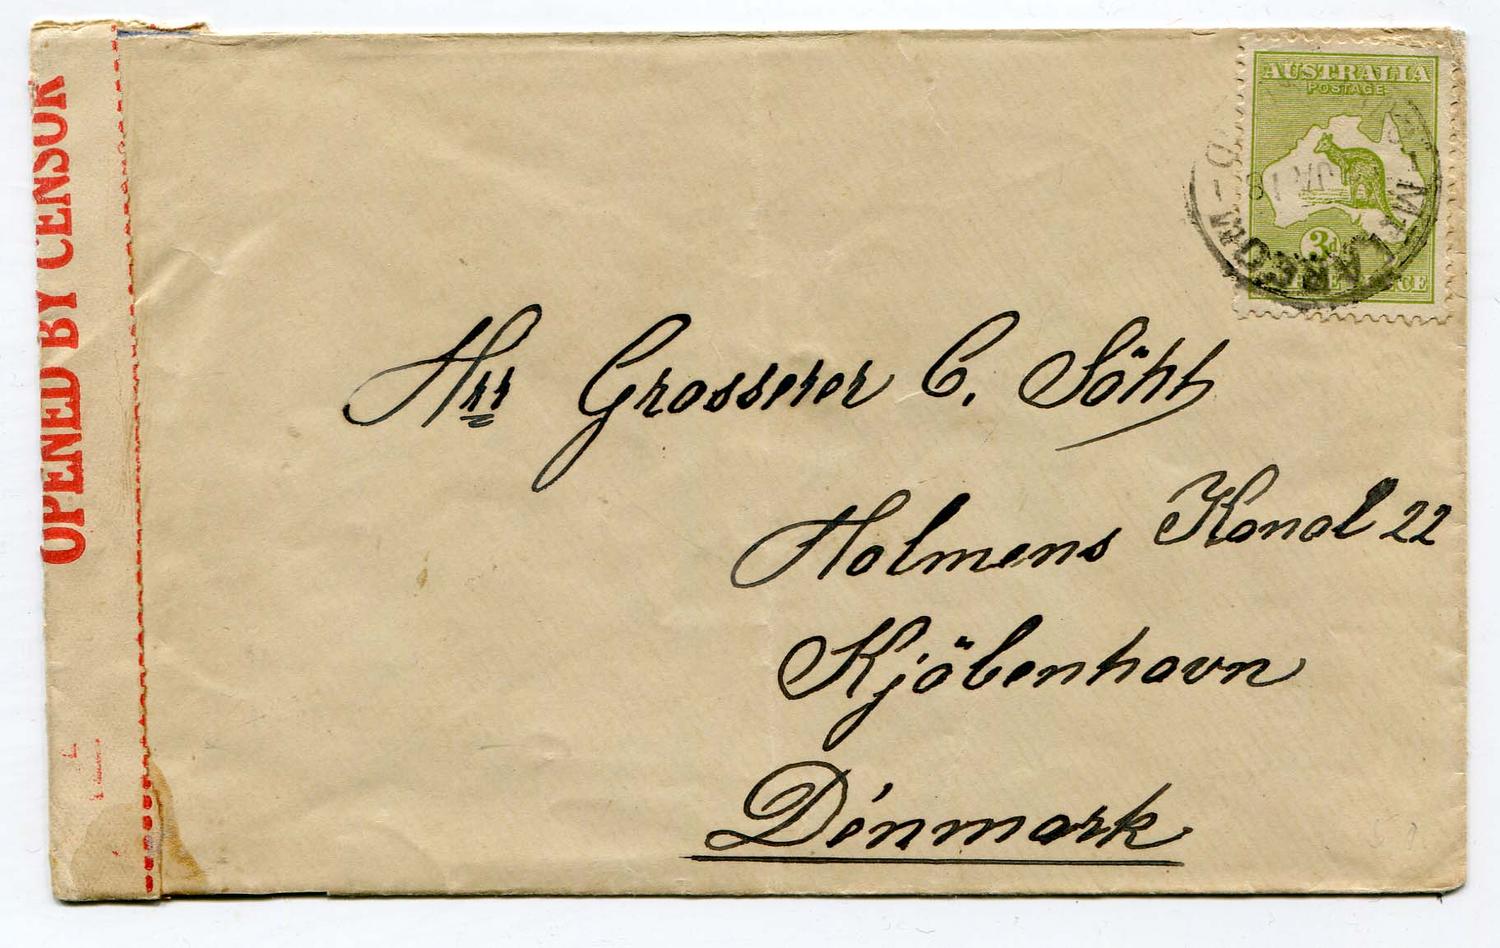 OPENED BY CENSOR
AUSTRALIA
POSTAGE
3d
MT LARCOM
Hrr Grosserer C. Söht
Holmens Kanal 22
Kjöbenhavn
Dénmark